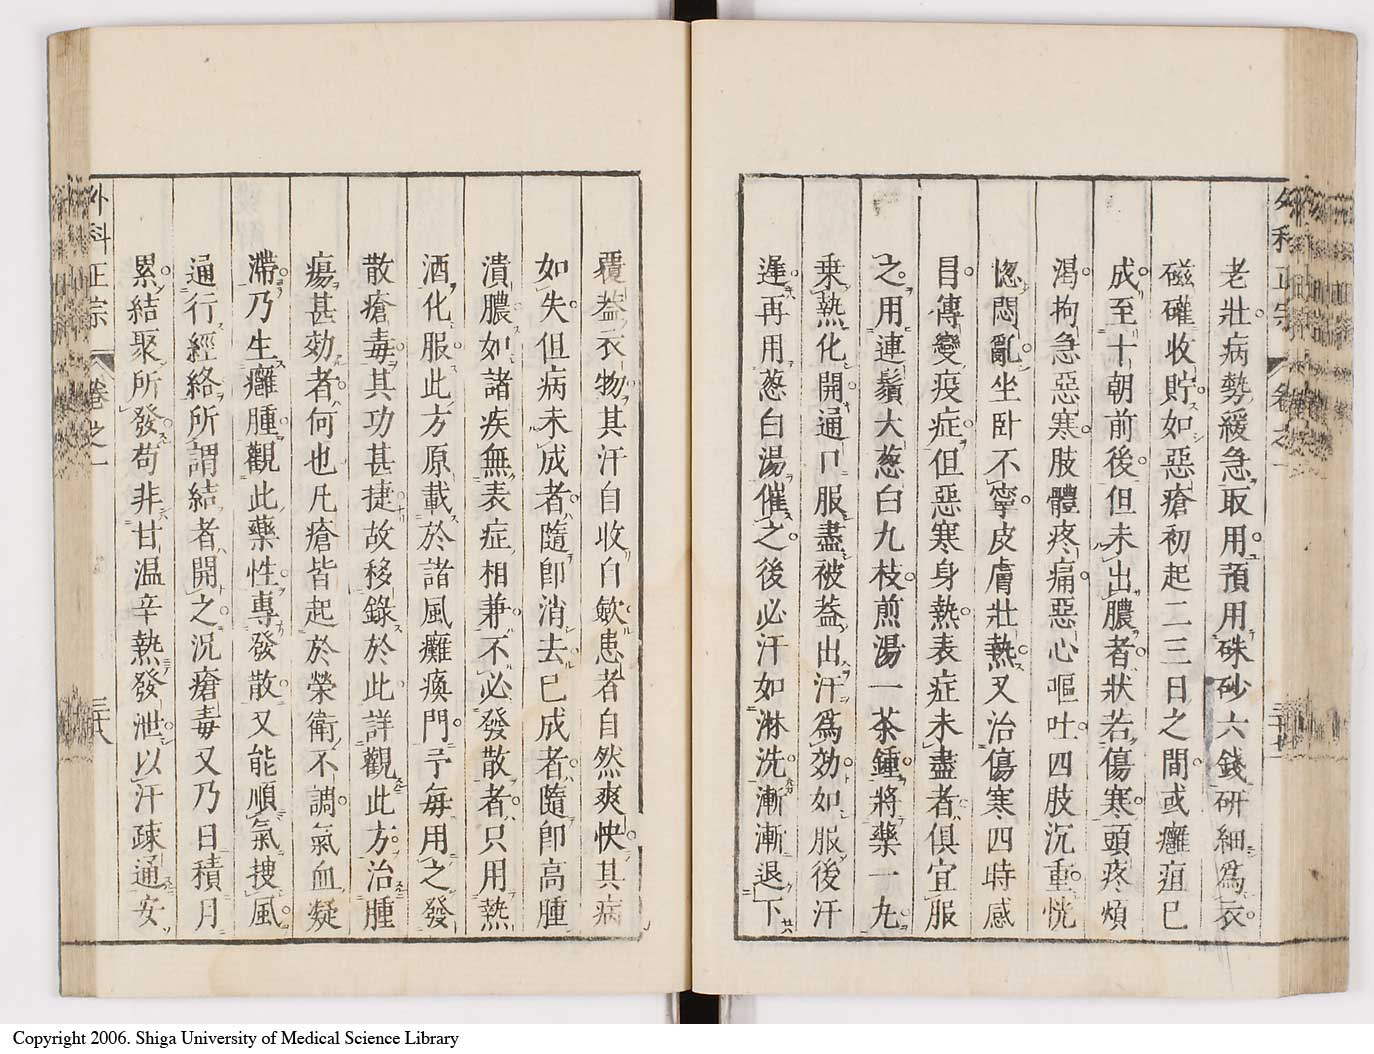 外科正宗 卷之一
老壯病勢緩急取用預用硃砂六錢研細爲衣
磁礶收貯如惡瘡初起二三日之間或癰疽已
成至十朝前後但未出膿者狀若傷寒頭疼煩
渴拘急惡寒肢體疼痛惡心嘔吐四肢沉重恍
惚悶亂坐卧不寧皮膚壯熱又治傷寒四時感
目傳變疫症但惡寒身熱表症未盡者俱宜服
之用連鬚大葱白九枝煎湯一茶鍾將藥一丸
乗熱化開通口服盡被葢出汗爲効如服後汗
遲再用葱白湯催之後必汗如淋洗漸漸退下
覆葢衣物其汗自收自斂患者自然爽快其病
如失但病未成者隨即消去已成者隨即高腫
潰膿如諸疾無表症相兼不必發散者只用熱
酒化服此方原載於諸風癱瘓門予每用之發
散瘡毒其功甚捷故移錄於此詳觀此方治腫
瘍甚効者何也凡瘡皆起於榮衛不調氣血凝
滯乃生癰腫觀此藥性專發散又能順氣搜風
通行經絡所謂結者開之况瘡毒又乃日積月
累結聚所發苟非甘温辛熱發泄以汗疎通安
外科正宗 卷之一 三十八
Copyright 2006. Shiga University of Medical Science Library